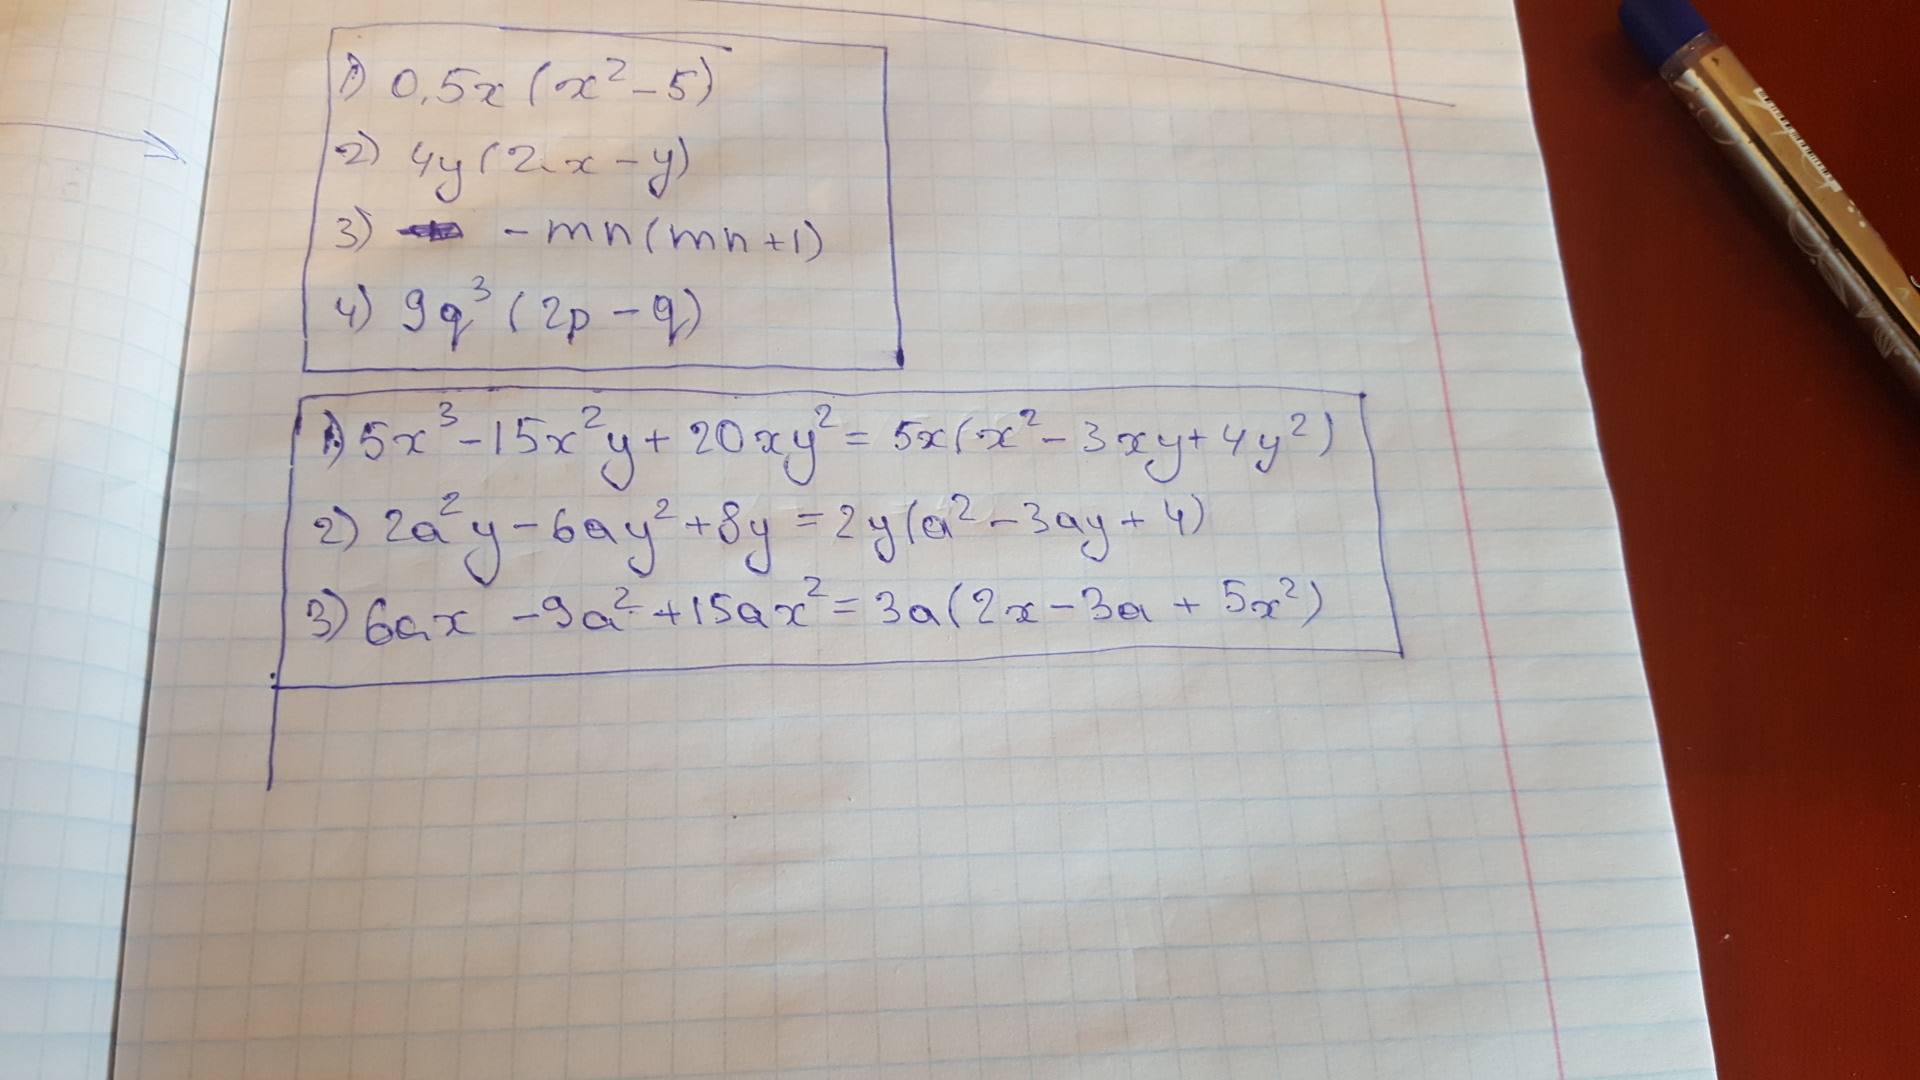 1) 0,5x (x² - 5)
2) 4y (2x - y)
3) - mn (mn + 1)
4) 9q³ (2p - q)
1) 5x³ - 15x²y + 20xy² = 5x(x² - 3xy + 4y²)
2) 2a²y - 6ay² + 8y = 2y(a² - 3ay + 4)
3) 6ax - 9a² + 15ax² = 3a(2x - 3a + 5x²)